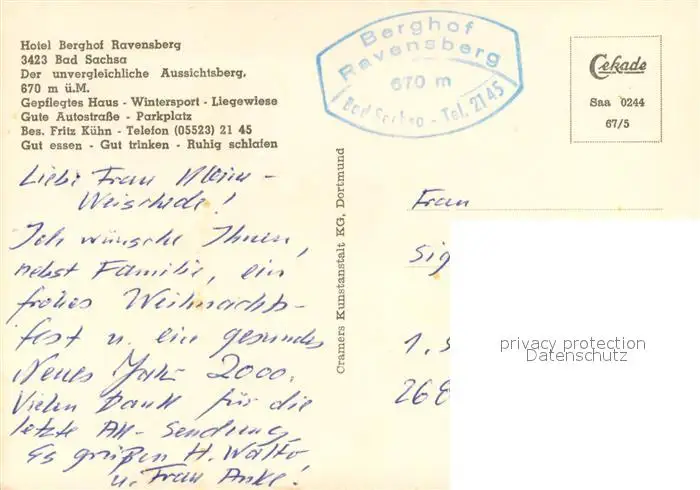 Hotel Berghof Ravensberg
3423 Bad Sachsa
Der unvergleichliche Aussichtsberg,
670 m ü.M.
Gepflegtes Haus - Wintersport - Liegewiese
Gute Autostraße - Parkplatz
Bes. Fritz Kühn - Telefon (05523) 21 45
Gut essen - Gut trinken - Ruhig schlafen
Berghof
Ravensberg
670 m
Bad Sachsa - Tel. 2145
Cekade
Saa 0244
67/5
Liebe Frau Klein-
Weischede!
Ich wünsche Ihnen,
nebst Familie, ein
frohes Weihnachts-
fest u. ein gesundes
Neues Jahr 2000.
Vielen Dank für die
letzte AK-Sendung
Es grüßen H. Walto
u. Frau Anke!
Cramers Kunstanstalt KG, Dortmund
Frau
Sig
1.
268
privacy protection
Datenschutz